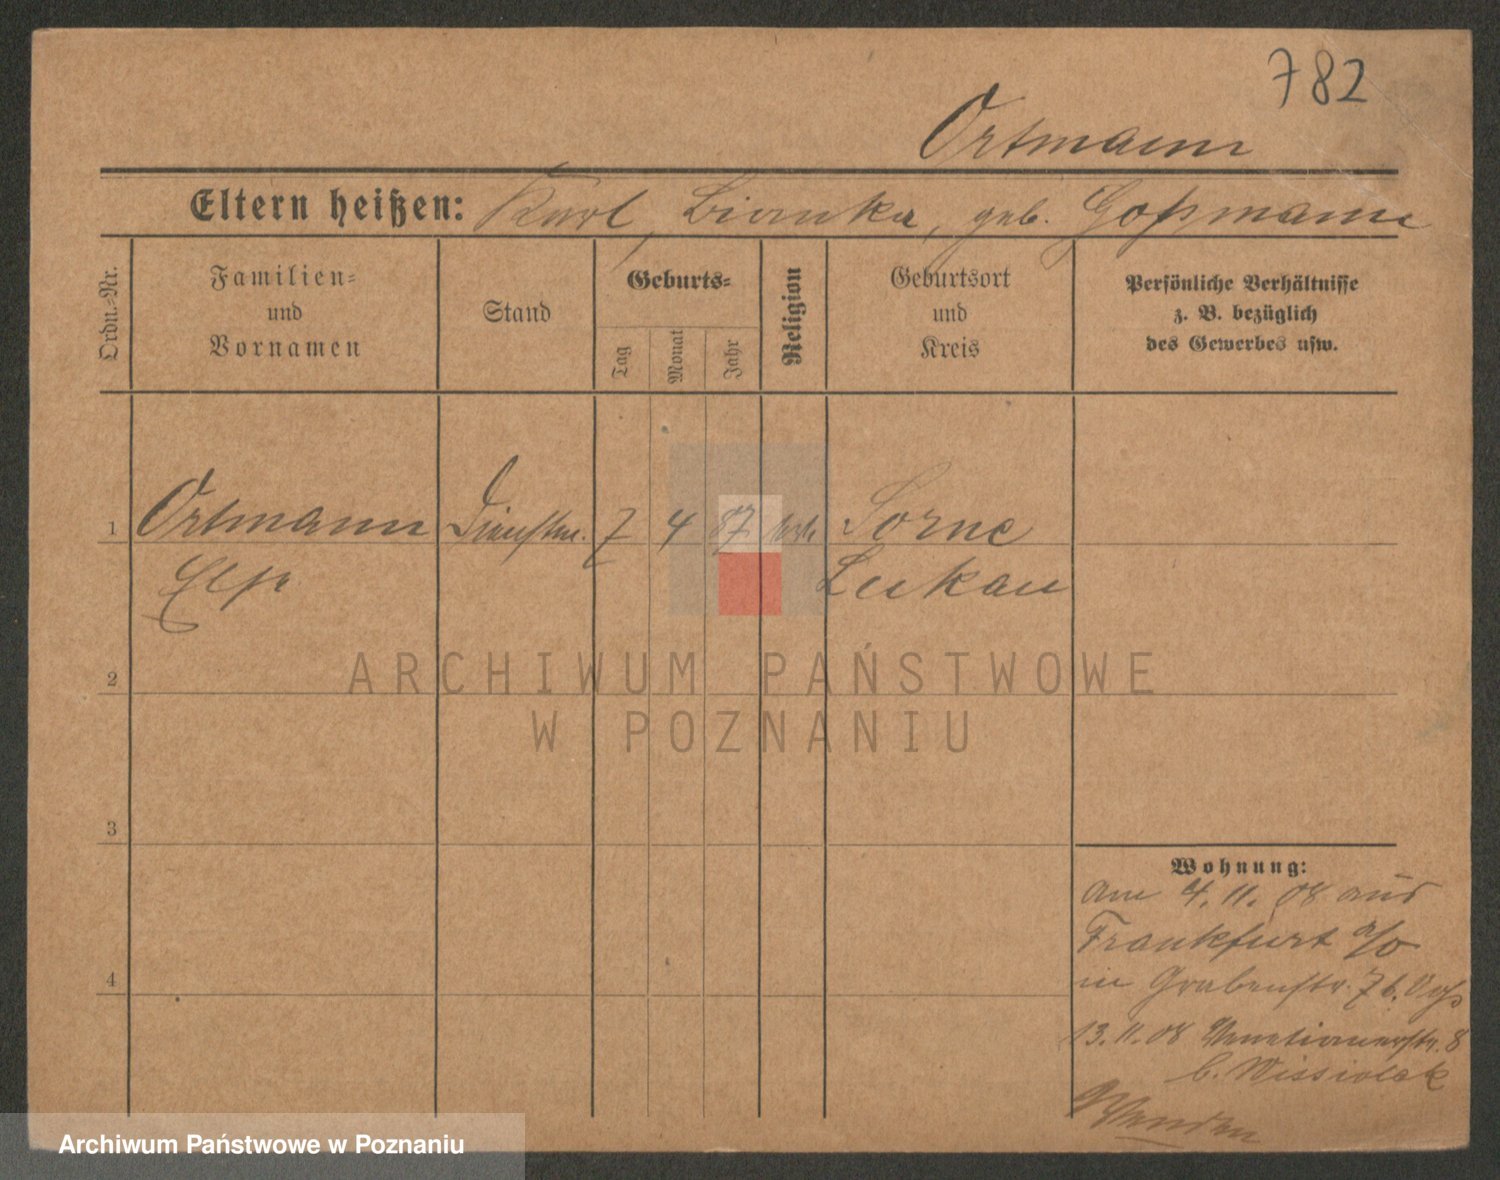 782
Ortmann
Eltern heißen: Karl, Bianka, geb. Goßmann
Ordn.-Nr.
Familien-
und
Vornamen
Stand
Geburts-
Tag
Monat
Jahr
Religion
Geburtsort
und
Kreis
Persönliche Verhältnisse
z. B. bezüglich
des Gewerbes usw.
1 Ortmann 7 4 87 Sorne
Lukau
2
3
4
Wohnung:
am 4. 11. 08 aus
Frankfurt a/O
in Grabenstr. 7 b.
13. 11. 08 Venetianerstr. 8
b. Wissiolek
Wenden
ARCHIWUM PAŃSTWOWE
W POZNANIU
Archiwum Państwowe w Poznaniu